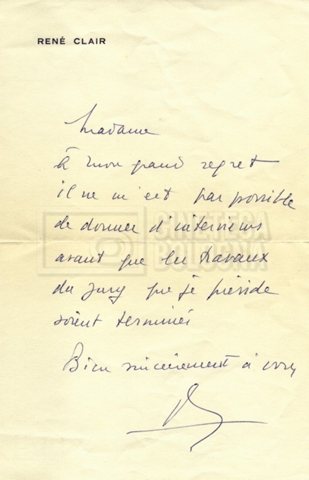 RENÉ CLAIR
Madame
À mon grand regret
il ne m'est pas possible
de donner d'interviews
avant que les travaux
du jury que je préside
soient terminés
Bien sincèrement à vous
CINETECA
BOLOGNA